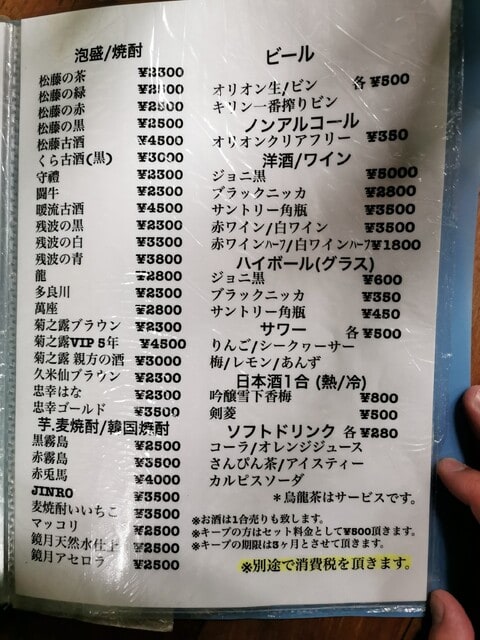 泡盛/焼酎
松藤の茶 ¥2300
松藤の緑 ¥2500
松藤の赤 ¥2500
松藤の黒 ¥2500
松藤古酒 ¥4500
くら古酒(黒) ¥3000
守禮 ¥2300
闘牛 ¥2300
暖流古酒 ¥4500
残波の黒 ¥2300
残波の白 ¥3300
残波の青 ¥3800
龍 ¥2800
多良川 ¥2300
萬座 ¥2800
菊之露ブラウン ¥2300
菊之露VIP 5年 ¥4500
菊之露 親方の酒 ¥3000
久米仙ブラウン ¥2300
忠孝はな ¥2300
忠孝ゴールド ¥3500
芋.麦焼酎/韓国焼酎
黒霧島 ¥2500
赤霧島 ¥3500
赤兎馬 ¥4000
JINRO ¥3500
麦焼酎いいちこ ¥3500
マッコリ ¥2500
鏡月天然水仕上 ¥2500
鏡月アセロラ ¥2500
ビール
オリオン生/ビン 各 ¥500
キリン一番搾りビン
ノンアルコール
オリオンクリアフリー ¥350
洋酒/ワイン
ジョニ黒 ¥5000
ブラックニッカ ¥2800
サントリー角瓶 ¥3500
赤ワイン/白ワイン ¥3500
赤ワインハーフ/白ワインハーフ ¥1800
ハイボール(グラス)
ジョニ黒 ¥600
ブラックニッカ ¥350
サントリー角瓶 ¥450
サワー 各 ¥500
りんご/シークヮーサー
梅/レモン/あんず
日本酒1合 (熱/冷)
吟醸雪下香梅 ¥800
剣菱 ¥500
ソフトドリンク 各 ¥280
コーラ/オレンジジュース
さんぴん茶/アイスティー
カルピスソーダ
*烏龍茶はサービスです。
※お酒は1合売りも致します。
※キープの方はセット料金として¥500頂きます。
※キープの期限は3ヶ月とさせて頂きます。
※別途で消費税を頂きます。